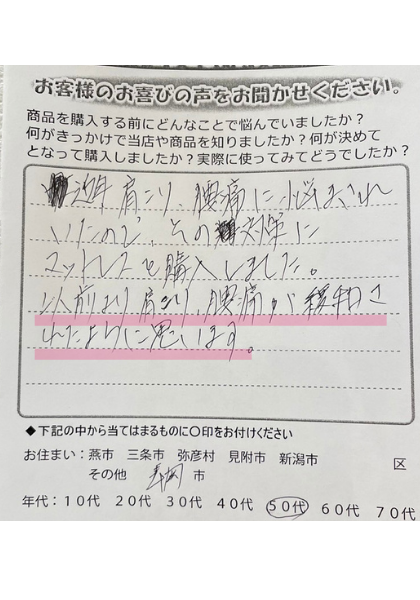 お客様のお喜びの声をお聞かせください。
商品を購入する前にどんなことで悩んでいましたか？
何がきっかけで当店や商品を知りましたか？何が決めて
となって購入しましたか？実際に使ってみてどうでしたか？
近年肩こり、腰痛に悩まされ
いたので、その対策に
マットレスを購入しました。
以前より肩こり、腰痛が緩和さ
れたように思います。
◆下記の中から当てはまるものに〇印をお付けください
お住まい：燕市 三条市 弥彦村 見附市 新潟市 区
その他 市
年代：１０代 ２０代 ３０代 ４０代 ５０代 ６０代 ７０代